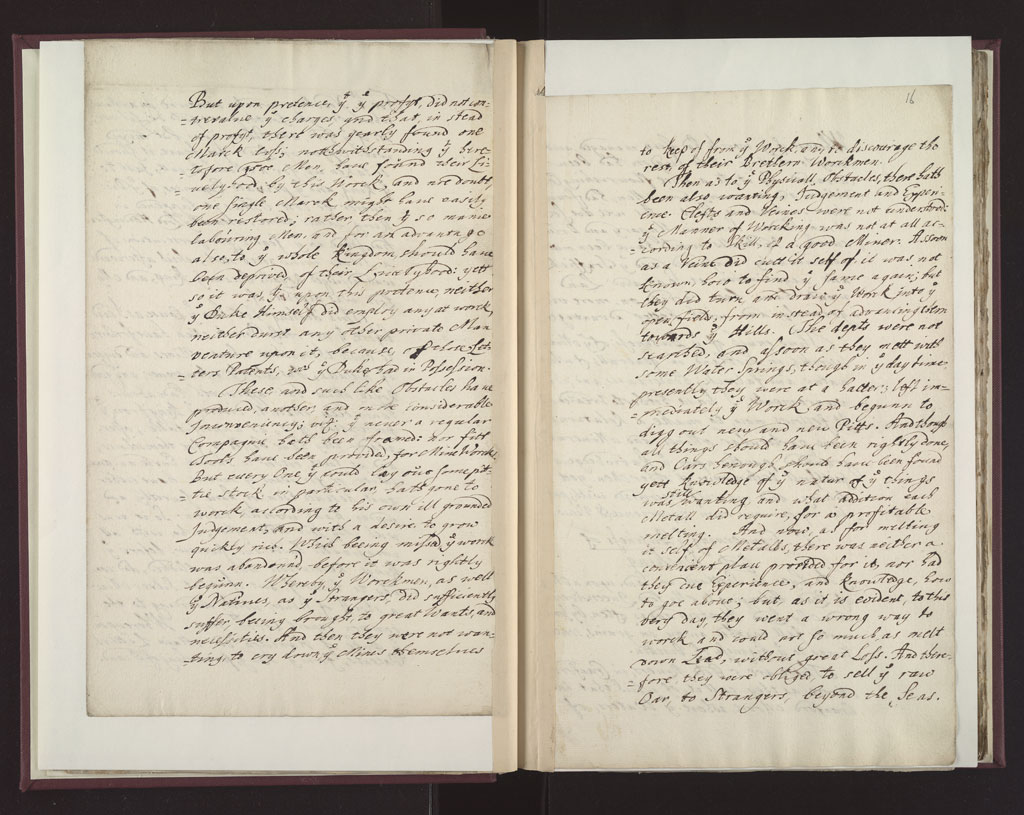 But upon pretence, yt ye profyt, did not con-
=trevalue ye charges and that, in stead
of profyt, there was yearly found one
Marck loss; nothwithstanding yt here-
=tofore 3500 Men, have found their Li-
=velyhod, by this Worck, and no doubt,
one single Marck might have easily
been restored; rather then yt so manie
labouring Men, and for an advantage
also, to ye whole Kingdom, should have
been deprived of their Livelyhood: yett
so it was, yt upon this pretence, neither
ye Duke Himself did employ any at work,
neither durst any other private Man
venture upon it, because, of these Let-
=ters Patents, was ye Duke had in Possession.
These, and such like Obstacles have
produced another, and more considerable
Inconveniency; viz: yt never a regular
Compagnie hath been framed: nor fitt
Tools have been provided, for MineWorck,
But every One yt could lay out some pit-
=tie stock in particular, hath gone to
worck according to his own ill grounded
Judgement, and with a desire to grow
quickly rich. Which beeing missed ye work
was abandoned, before it was rightly
begunn. Whereby ye Workmen, as well
ye Natives, as ye Strangers, did sufficiently
suffer, being brought, to great Wants, and
necessities. And then they were not wan-
=ting, to cry down ye Mines themselves
16
to keep of from ye Worck, any & discourage the
rest, of their Brethern Workmen.
Then as to ye Physicall Obstacles, there hath
been also wanting, Judgement and Experi-
=ence. Clefts and Veines were not understood:
ye Manner of Worcking was not at all ac-
=cording to Skill, of a good Miner. Assoon
as a Veine did cutt it self of, it was not
known, how to find ye same again; but
they did turn and drave ye Work into ye
open field, from instead, of advancing them
towards ye Hills. The depts were not
searched, and assoon as they mett with
some Water Springs, though in ye day time,
presently they were at a halter; left im-
=mediately ye Worck, and begunn to
digg out new and new Pitts. And though
all things should have been rightly done,
and Oars henough should have been found
yett knowledge of ye natur of ye things
was still wanting, and what addition each
Metall did require, for a profitable
melting. And now, as for melting
it self of Metalls, there was neither a
convenient place provided for it, nor had
they due Experience, and knowledge, how
to goe about; but, as it is evident, to this
very day, they went a wrong way to
worck and could not so much as melt
down Lead, without great Loss. And there-
=fore they were obliged, to sell ye raw
Oar, to Strangers, beyond the Seas.